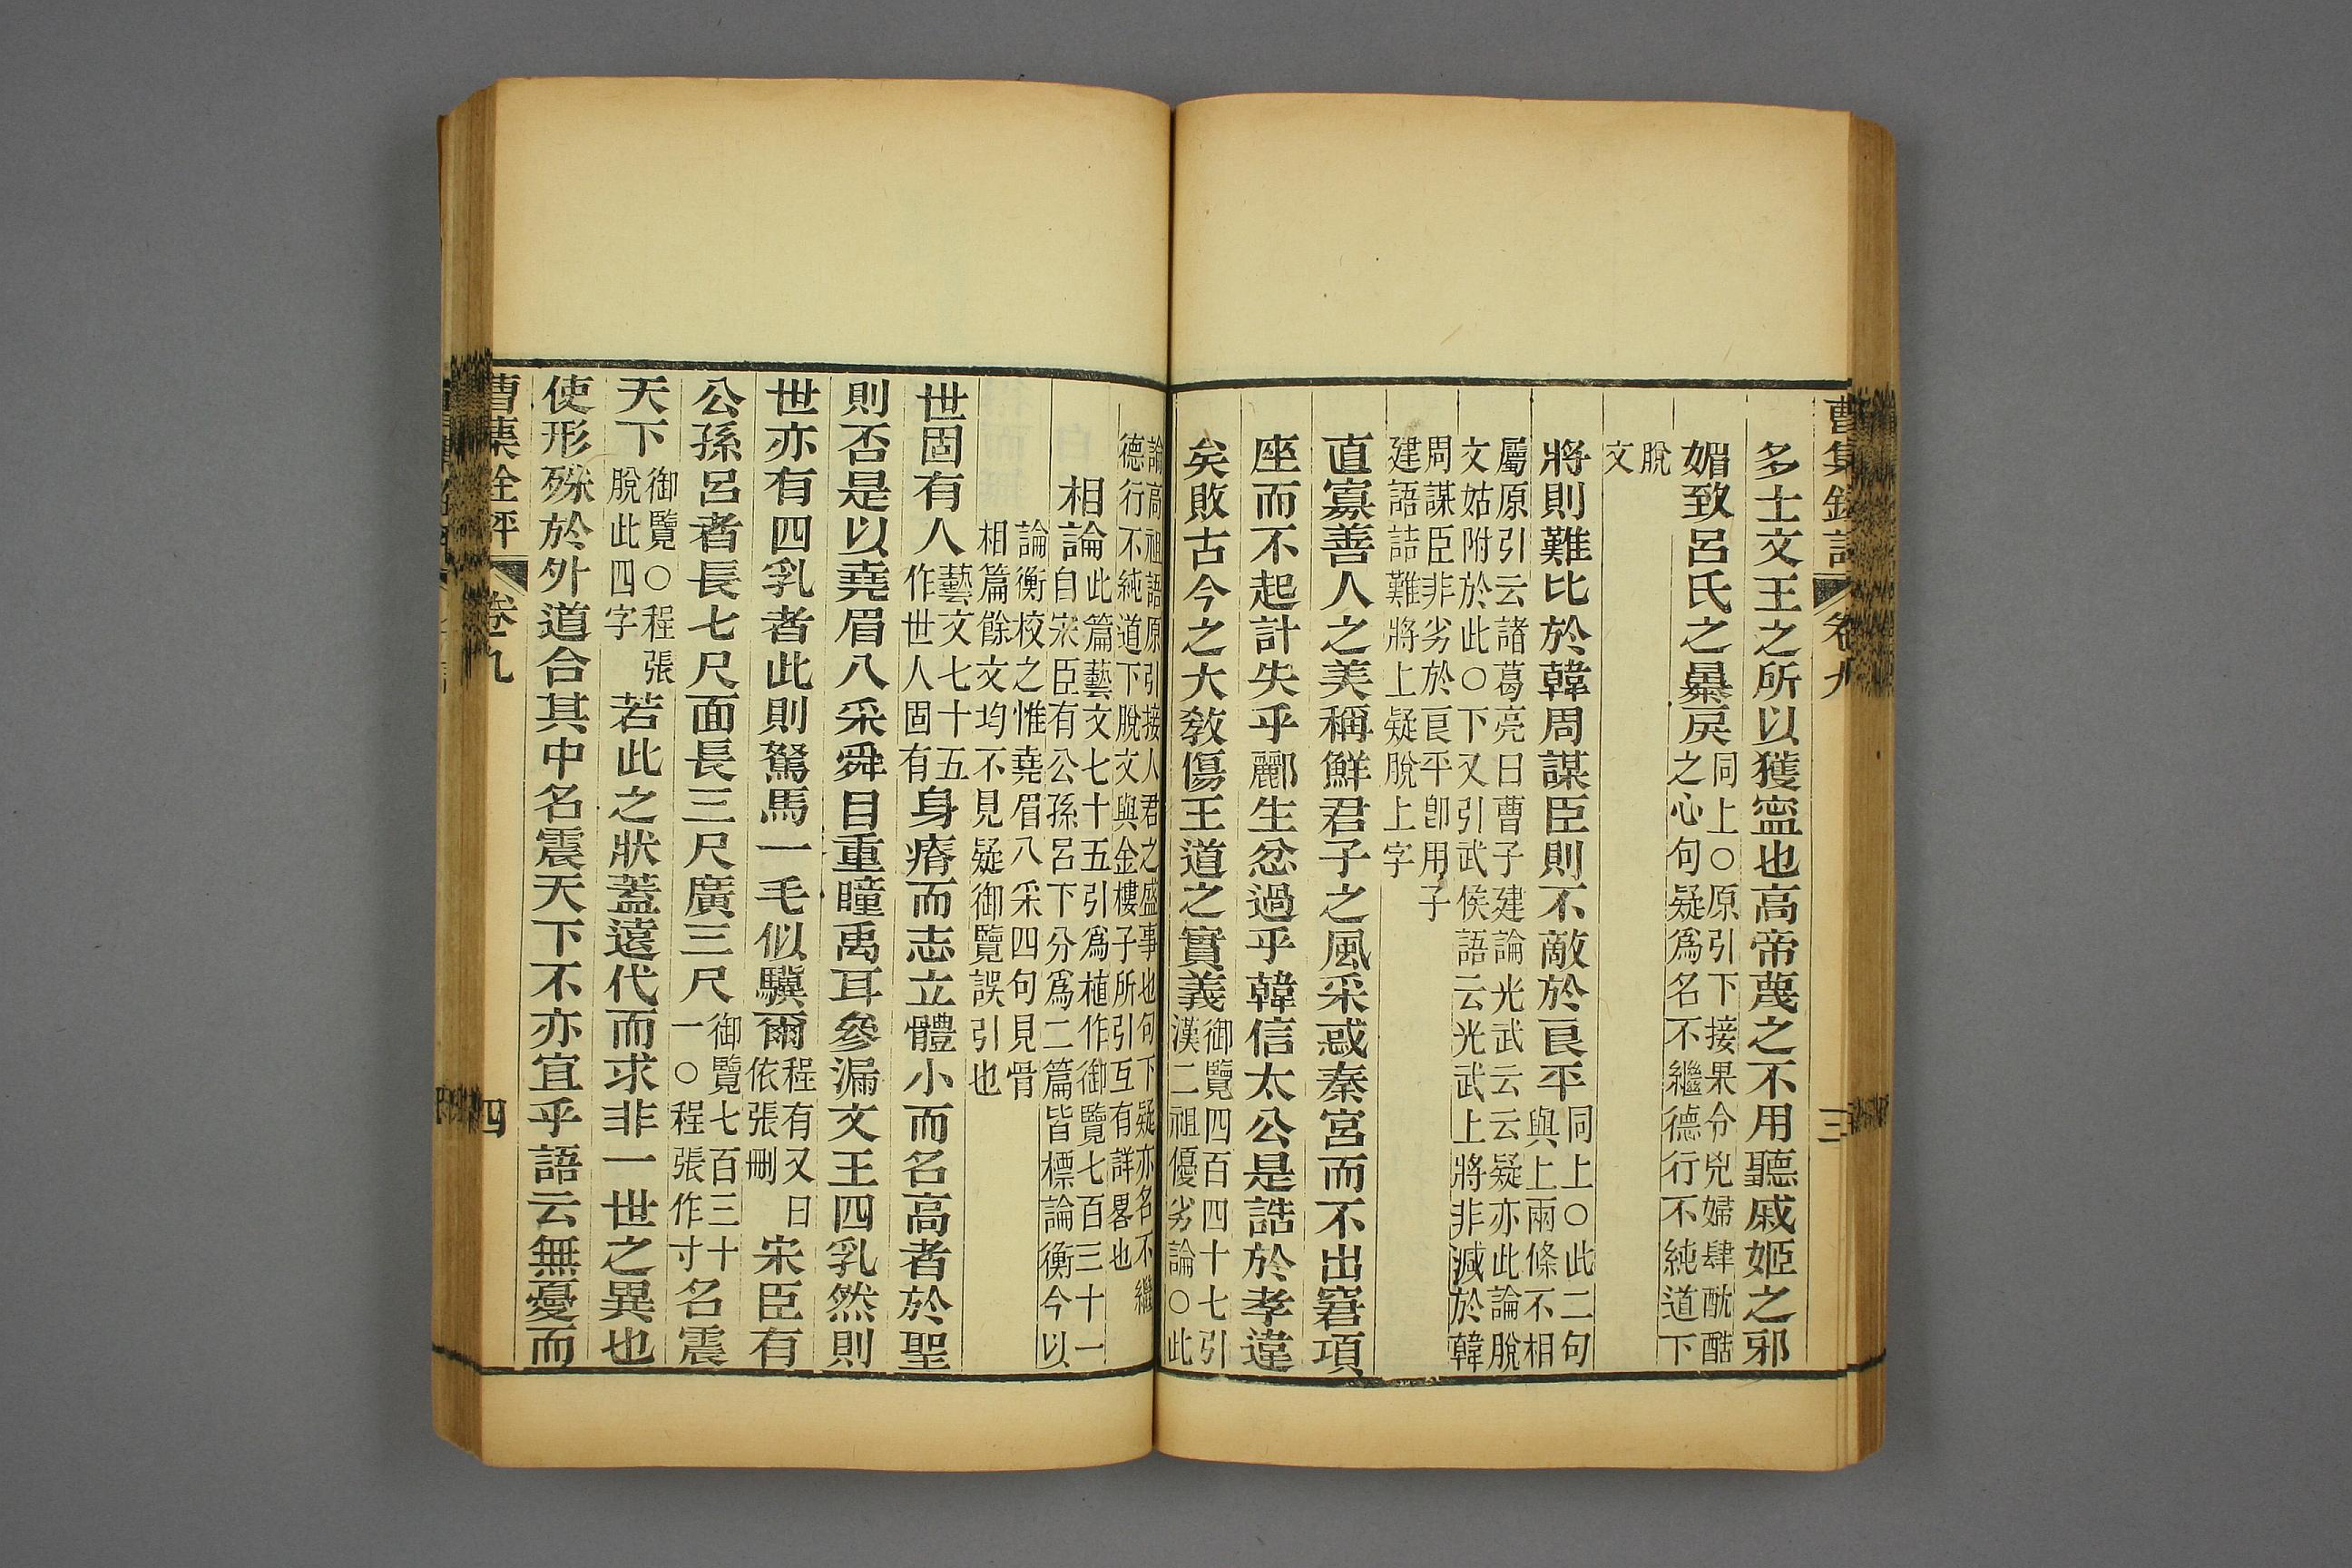 曹集銓評 卷九 三
多士文王之所以獲寍也高帝蔑之不用聽戚姬之邪
媚致呂氏之暴戾同上○原引下接果令兇婦肆酖酷之心句疑爲名不繼德行不純道下
脫文
將則難比於韓周謀臣則不敵於良平同上○此二句與上兩條不相
屬原引云諸葛亮曰曹子建論光武云云疑亦此論脫文姑附於此○下又引武侯語云光武上將非減於韓
周謀臣非劣於良平卽用子建語詰難將上疑脫上字
直寡善人之美稱鮮君子之風采惑秦宮而不出窘項
座而不起計失乎酈生忿過乎韓信太公是誥於孝違
矣敗古今之大敎傷王道之實義御覽四百四十七引漢二祖優劣論○此
論高祖語原引接人君之盛事也句下疑亦名不繼德行不純道下脫文與金樓子所引互有詳畧也
相論此篇藝文七十五引爲植作御覽七百三十一自宋臣有公孫呂下分爲二篇皆標論衡今以
論衡校之惟堯眉八采四句見骨相篇餘文均不見疑御覽誤引也
世固有人藝文七十五作世人固有身瘠而志立體小而名高者於聖
則否是以堯眉八采舜目重瞳禹耳參漏文王四乳然則
世亦有四乳者此則駑馬一毛似驥爾程有又曰依張刪宋臣有
公孫呂者長七尺面長三尺廣三尺御覽七百三十一○程張作寸名震
天下御覽○程張脫此四字若此之狀蓋遠代而求非一世之異也
使形殊於外道合其中名震天下不亦宜乎語云無憂而
曹集銓評 卷九 四